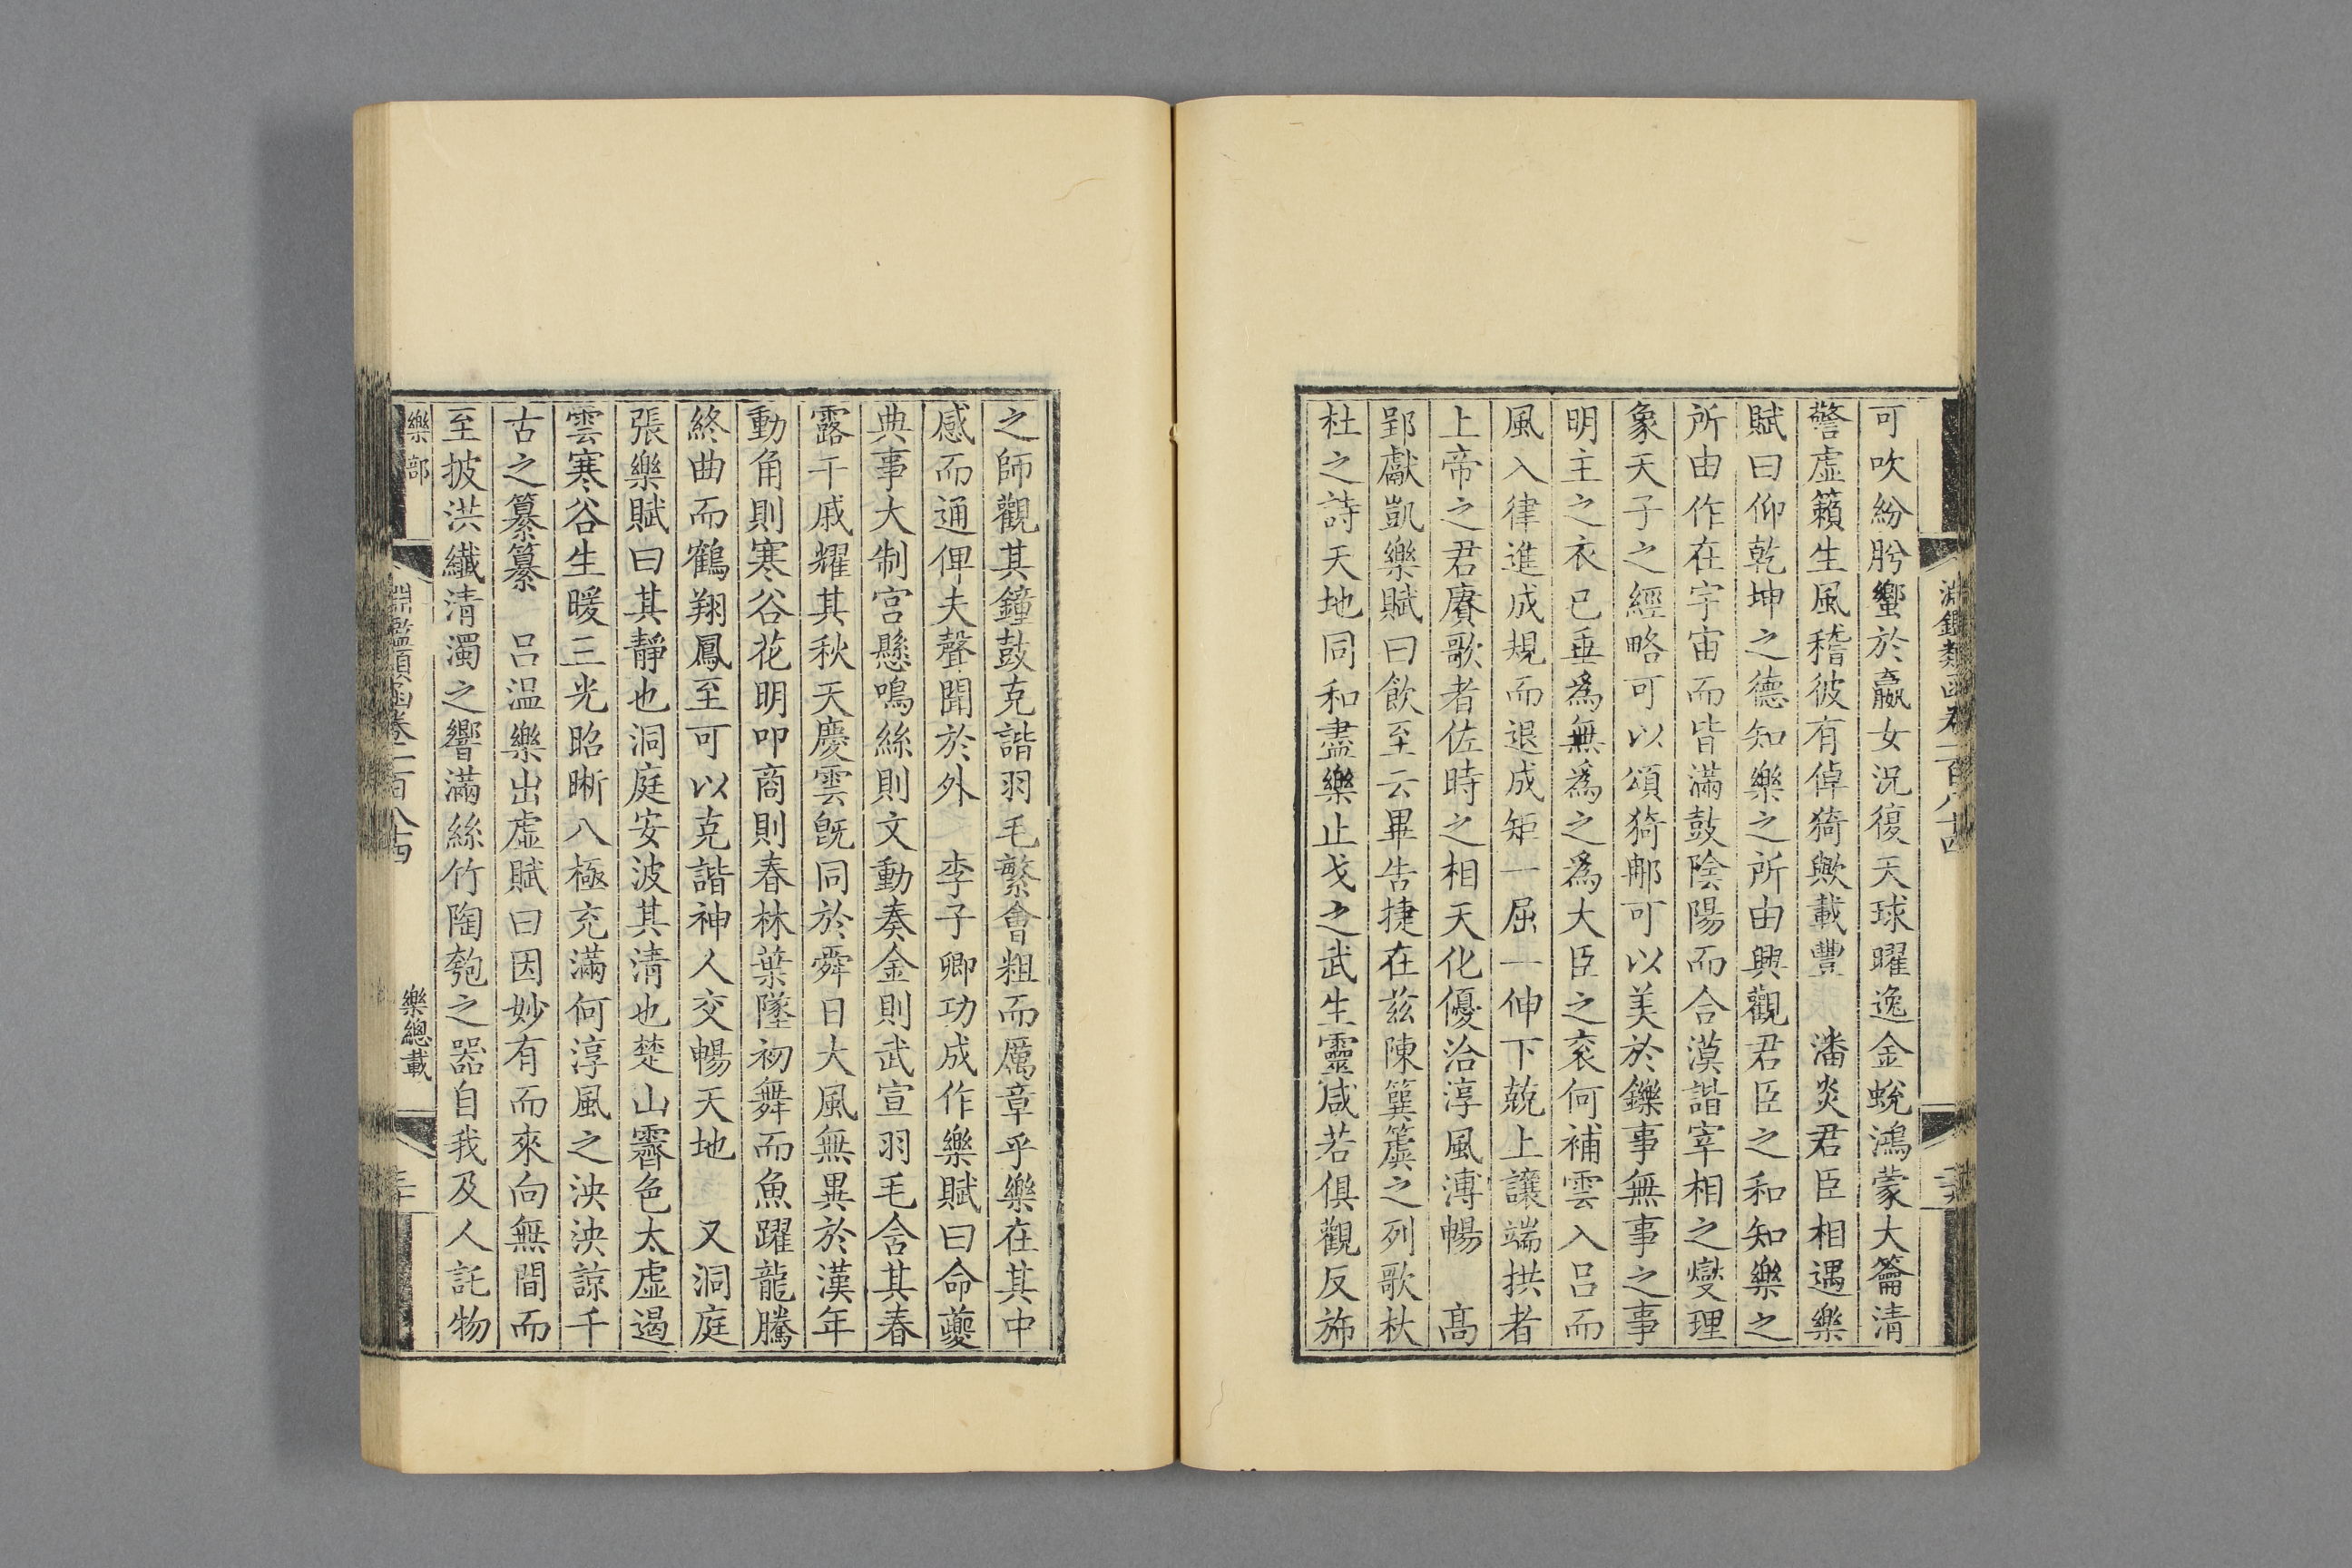 可吹紛肹蠁於嬴女況復天球曜逸金蛻鴻蒙大籥清
警虛籟生風稽彼有倬猗歟載豐　潘炎君臣相遇樂
賦曰仰乾坤之德知樂之所由興觀君臣之和知樂之
所由作在宇宙而皆滿鼓陰陽而合漠諧宰相之燮理
象天子之經略可以頌猗䣝可以美於鑠事無事之事
明主之衣已垂為無為之為大臣之衮何補雲入呂而
風入律進成規而退成矩一屈一伸下兢上讓端拱者
上帝之君賡歌者佐時之相天化優洽淳風溥暢　高
郢獻凱樂賦曰飲至云畢告捷在茲陳簨簴之列歌杕
杜之詩天地同和盡樂止戈之武生靈咸若俱觀反旆
淵鑑類函卷一百八十四
之師觀其鐘鼓克諧羽毛繁會粗而厲章乎樂在其中
感而通俾夫聲聞於外　李子卿功成作樂賦曰命夔
典事大制宮懸鳴絲則文動奏金則武宣羽毛含其春
露干戚耀其秋天慶雲旣同於舜日大風無異於漢年
動角則寒谷花明叩商則春林葉墜初舞而魚躍龍騰
終曲而鶴翔鳳至可以克諧神人交暢天地　又洞庭
張樂賦曰其靜也洞庭安波其清也楚山霽色太虛遏
雲寒谷生暖三光昭晰八極充滿何淳風之泱泱諒千
古之纂纂　呂温樂出虛賦曰因妙有而來向無間而
至披洪纖清濁之響滿絲竹陶匏之器自我及人託物
樂部　淵鑑類函卷一百八十四　樂總載